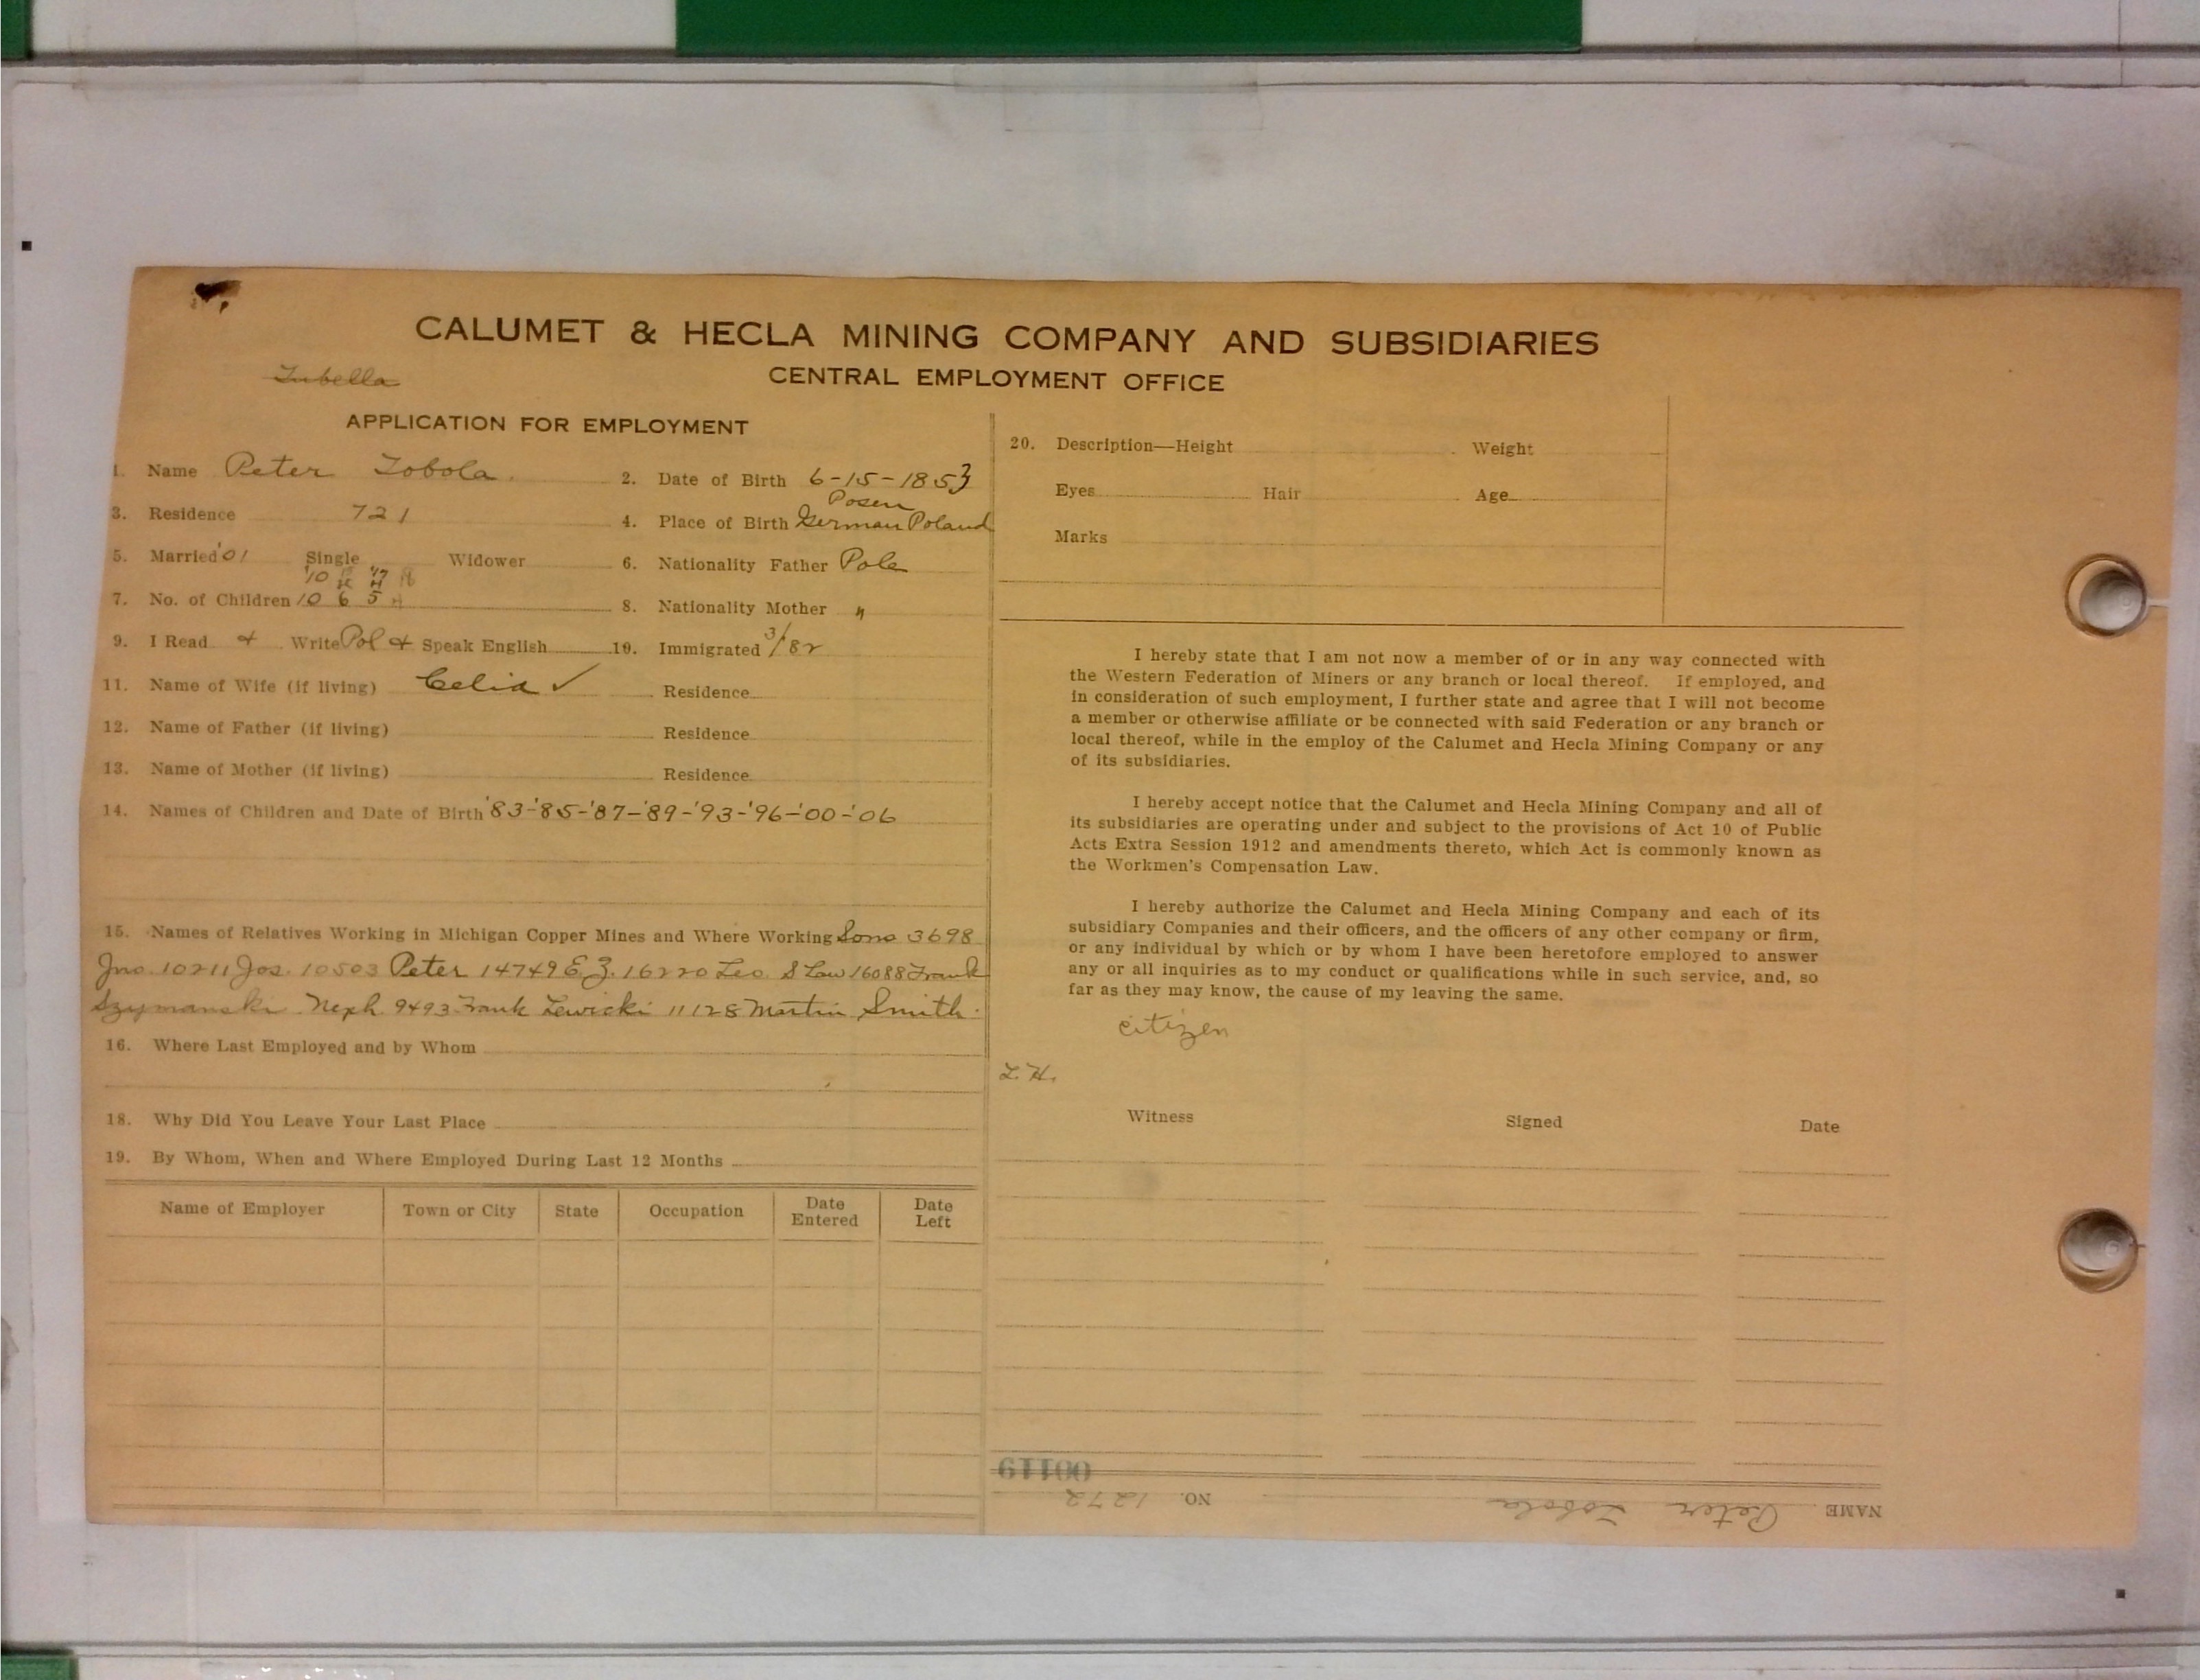 CALUMET & HECLA MINING COMPANY AND SUBSIDIARIES
CENTRAL EMPLOYMENT OFFICE
Tubella
APPLICATION FOR EMPLOYMENT
1. Name Peter Tobola. 2. Date of Birth 6-15-1853
3. Residence 721 4. Place of Birth Posen German Poland
5. Married '01 Single Widower 6. Nationality Father Pole
'10 '17
7. No. of Children 10 6 5 8. Nationality Mother "
9. I Read & Write Pol & Speak English 10. Immigrated 3/82
11. Name of Wife (if living) Celia ✓ Residence
12. Name of Father (if living) Residence
13. Name of Mother (if living) Residence
14. Names of Children and Date of Birth '83-'85-'87-'89-'93-'96-'00-'06
15. Names of Relatives Working in Michigan Copper Mines and Where Working Sons 3698
Jno. 10211 Jos. 10503 Peter 14749 E.Z. 16220 Leo S Law 16088 Frank
Szymanski Neph. 9493 Frank Lewicki 11128 Martin Smith.
16. Where Last Employed and by Whom
18. Why Did You Leave Your Last Place
19. By Whom, When and Where Employed During Last 12 Months
Name of Employer Town or City State Occupation Date Entered Date Left
20. Description—Height Weight
Eyes Hair Age
Marks
I hereby state that I am not now a member of or in any way connected with
the Western Federation of Miners or any branch or local thereof. If employed, and
in consideration of such employment, I further state and agree that I will not become
a member or otherwise affiliate or be connected with said Federation or any branch or
local thereof, while in the employ of the Calumet and Hecla Mining Company or any
of its subsidiaries.
I hereby accept notice that the Calumet and Hecla Mining Company and all of
its subsidiaries are operating under and subject to the provisions of Act 10 of Public
Acts Extra Session 1912 and amendments thereto, which Act is commonly known as
the Workmen's Compensation Law.
I hereby authorize the Calumet and Hecla Mining Company and each of its
subsidiary Companies and their officers, and the officers of any other company or firm,
or any individual by which or by whom I have been heretofore employed to answer
any or all inquiries as to my conduct or qualifications while in such service, and, so
far as they may know, the cause of my leaving the same.
citizen
L.H.
Witness Signed Date
00119
NAME Peter Tobola NO. 1272